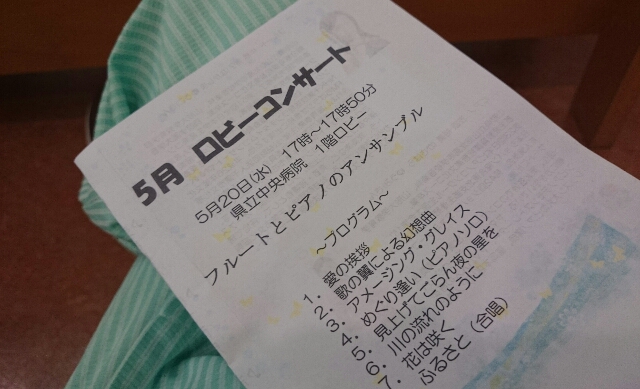 5月 ロビーコンサート
5月20日(水) 17時～17時50分
県立中央病院 1階ロビー
フルートとピアノのアンサンブル
～プログラム～
1. 愛の挨拶
2. 歌の翼による幻想曲
3. アメージング・グレイス
4. めぐり逢い(ピアノソロ)
5. 見上げてごらん夜の星を
6. 川の流れのように
7. 花は咲く
ふるさと(合唱)